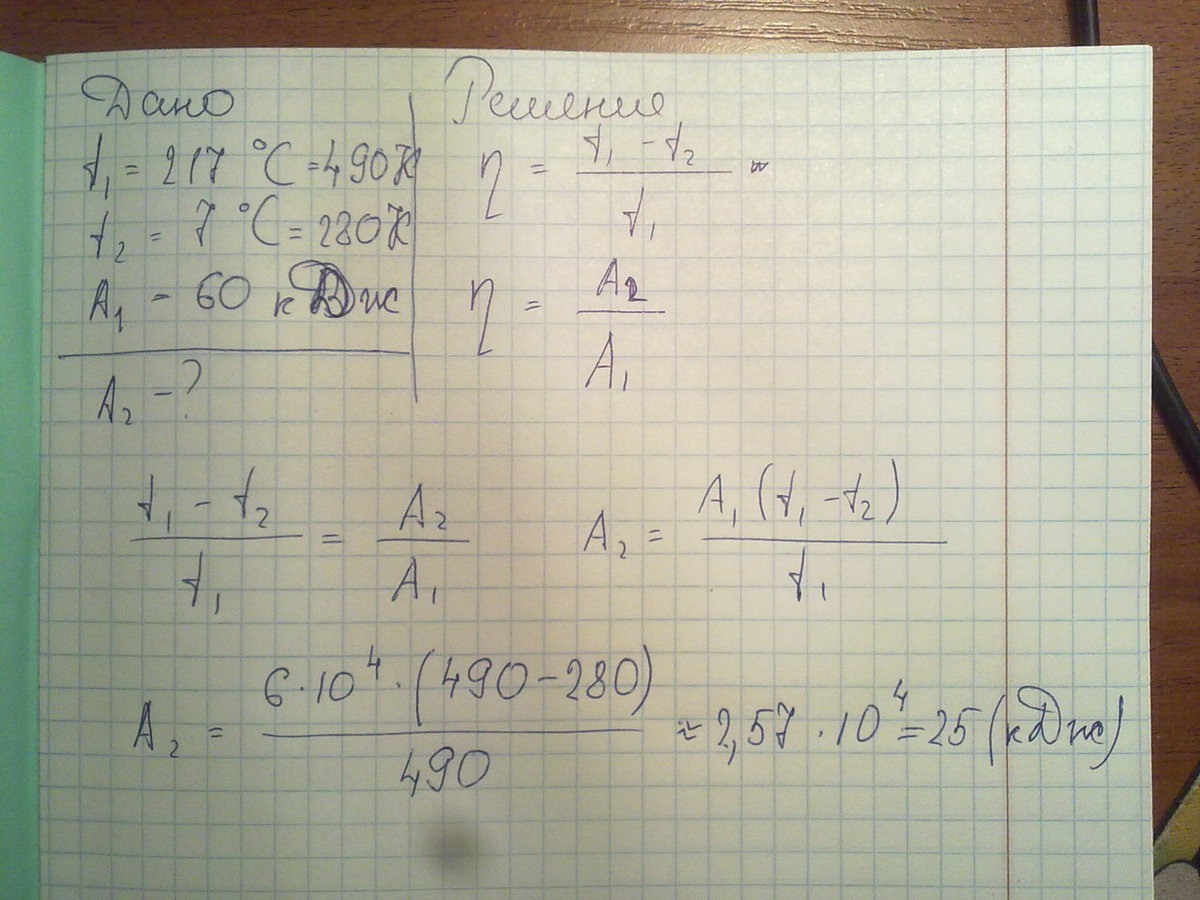 Дано
t₁ = 217 °C = 490 К
t₂ = 7 °C = 280 К
A₁ - 60 кДж
A₂ - ?
Решение
η = (t₁ - t₂) / t₁ =
η = A₂ / A₁
(t₁ - t₂) / t₁ = A₂ / A₁
A₂ = A₁ (t₁ - t₂) / t₁
A₂ = 6·10⁴·(490-280) / 490 ≈ 2,57·10⁴ = 25 (кДж)